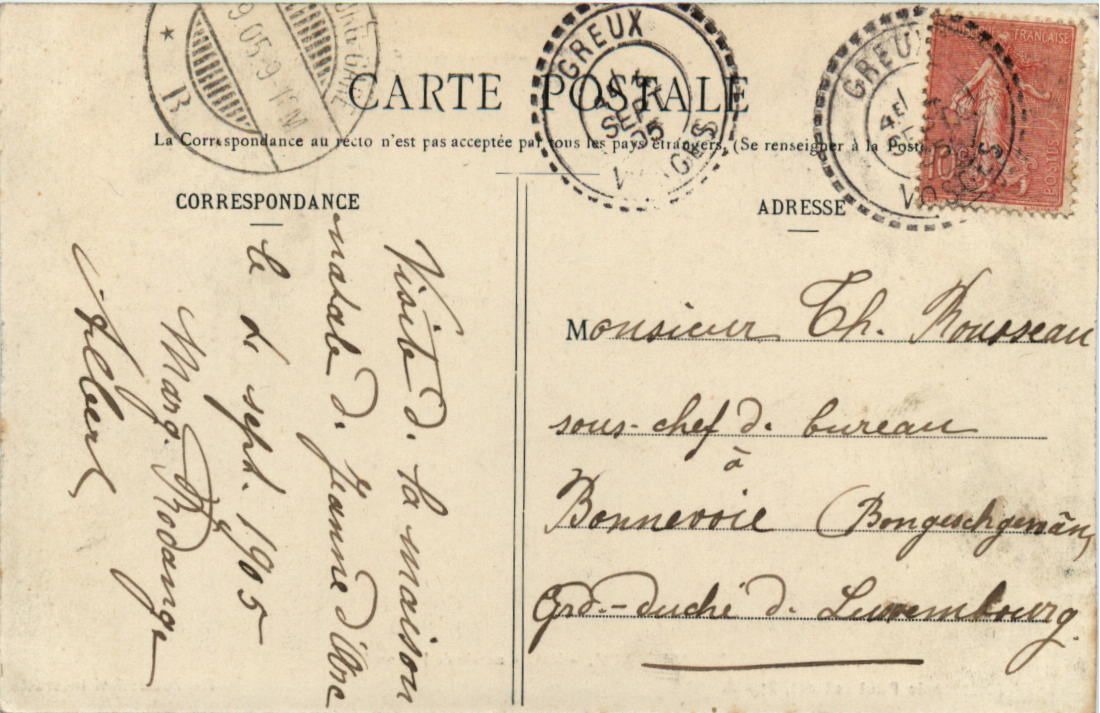 CARTE POSTALE
La Correspondance au recto n'est pas acceptée par tous les pays étrangers. (Se renseigner à la Poste
CORRESPONDANCE
Visite d. la maison
natale d. Jeanne d'Arc
le 2. sept. 1905
Marg. Rodange
Albert
ADRESSE
Monsieur Th. Rousseau
sous-chef d. bureau
à
Bonnevoie
Grd.-duché d. Luxembourg.
GREUX
SEPT
05
VOSGES
GREUX
VOSGES
FRANÇAISE
POSTES
10
9.05.9-10M
GARE
B